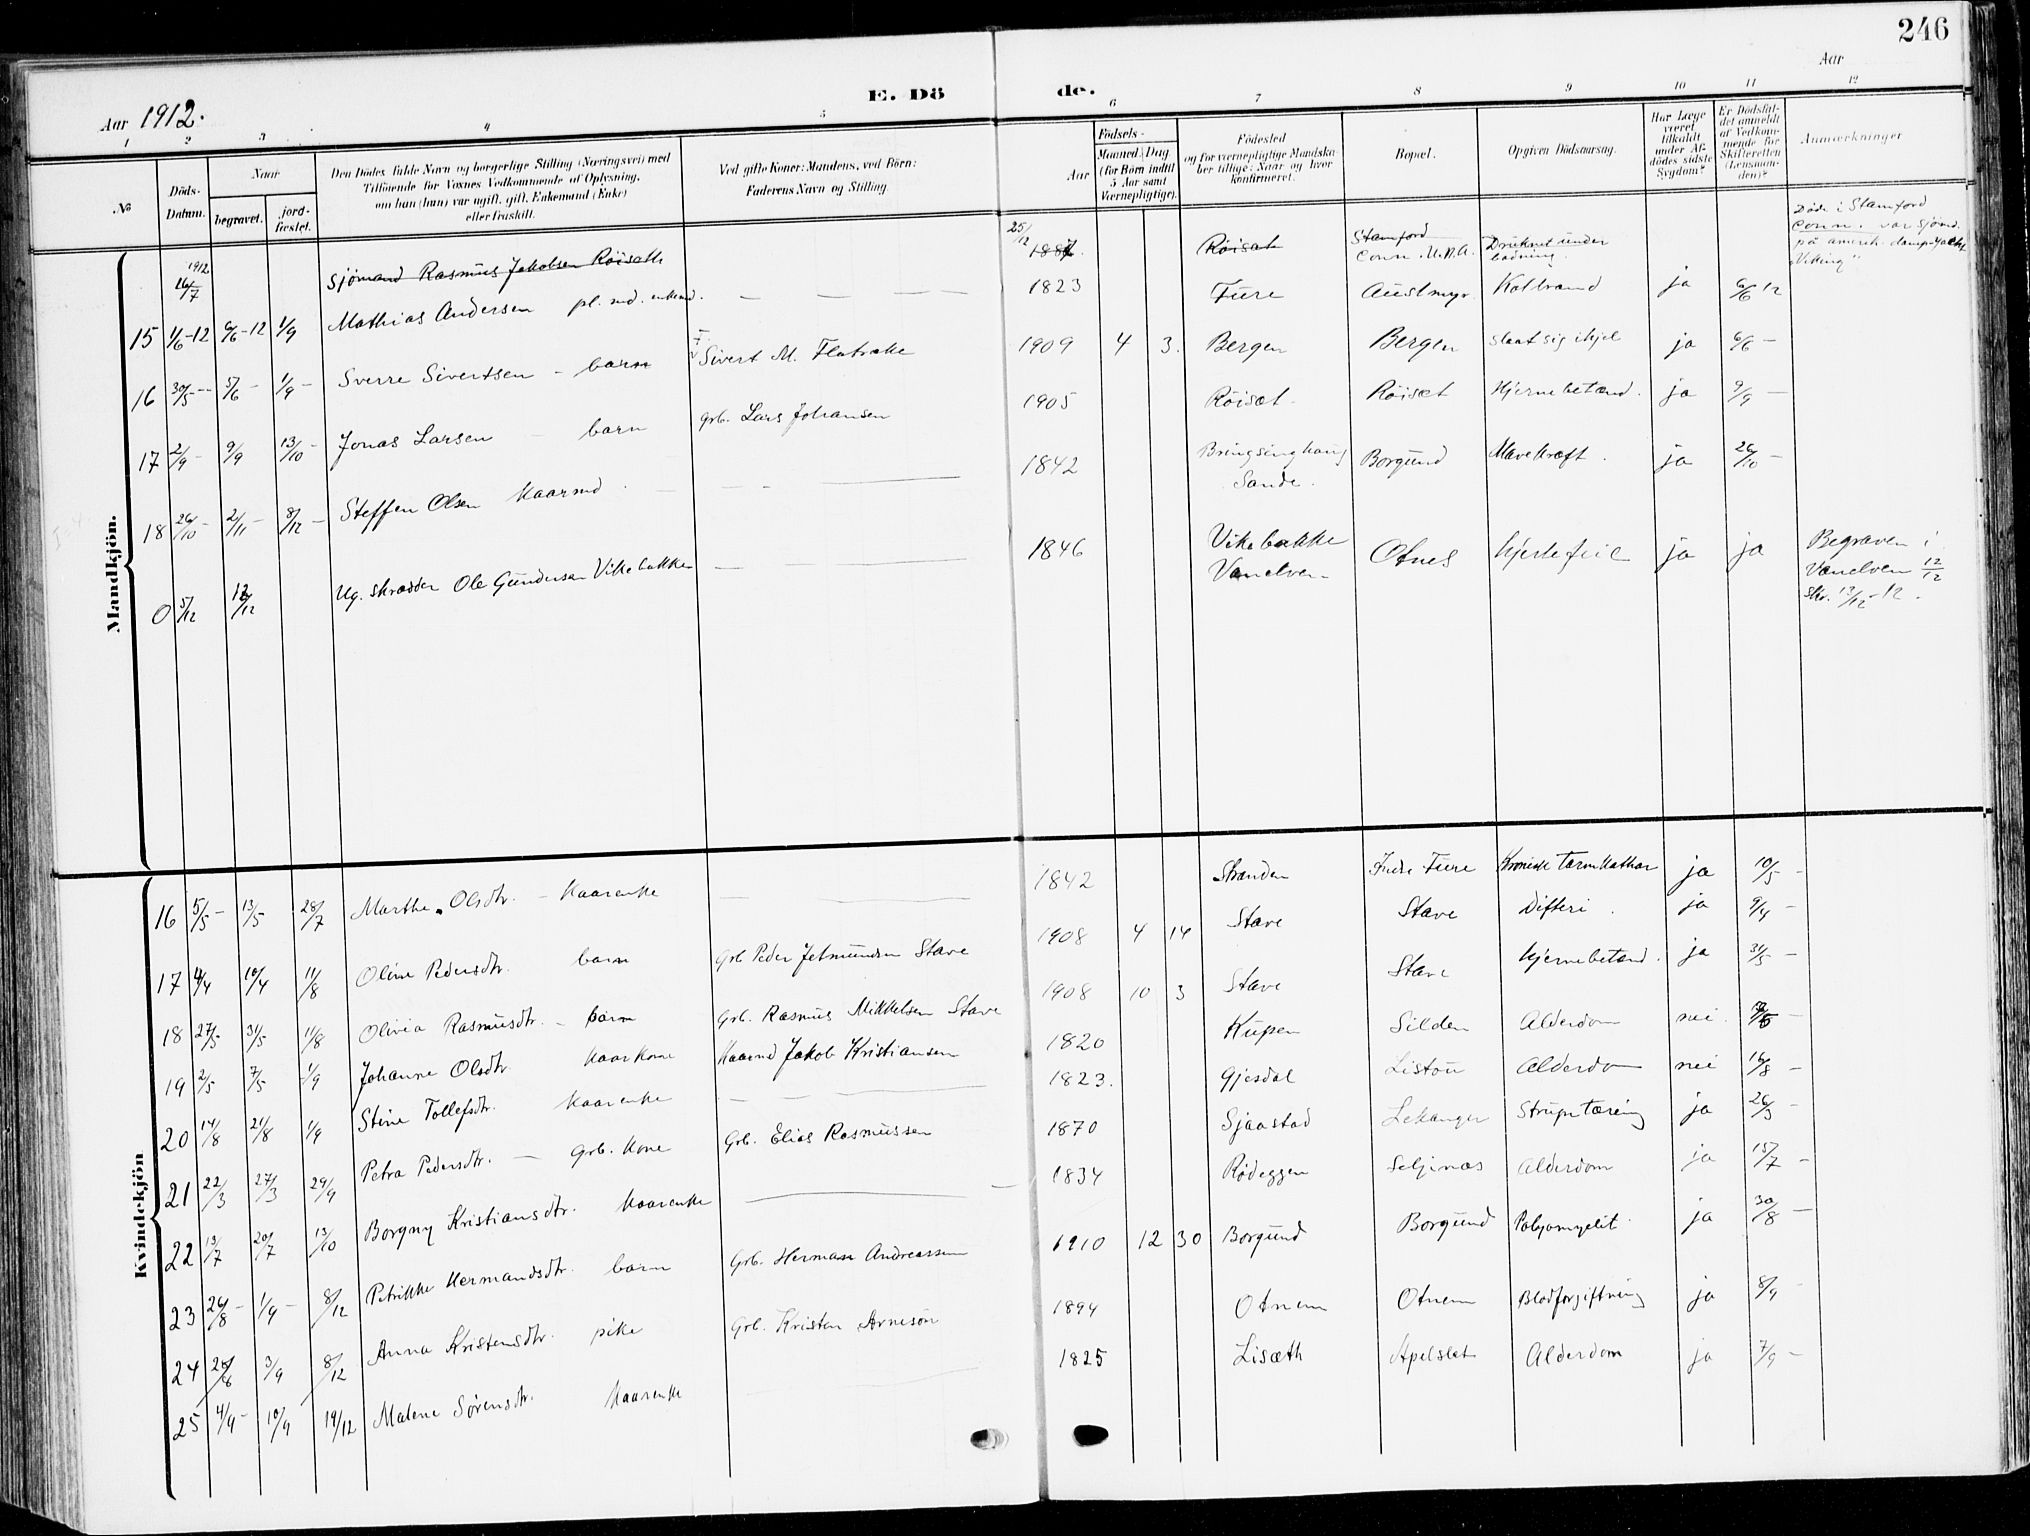 246
Aar 1912.
E. Dö de.
Aar
1 2 3 4 5 6 7 8 9 10 11 12
№
Döds-Datum.
Naar
begravet.
jord-fæstet.
Den Dödes fulde Navn og borgerlige Stilling (Næringsvei) med
Tilföiende for Voxnes Vedkommende af Oplysning,
om han (hun) var ugift, gift, Enkemand (Enke)
eller fraskilt.
Ved gifte Koner: Mandens, ved Börn:
Faderens Navn og Stilling.
Födsels-
Aar
Maaned. Dag.
(for Börn indtil
5 Aar samt
Værnepligtige).
Födested
og for værnepligtige Mandska-
ber tillige: Naar og hvor
konfirmeret.
Bopæl.
Opgiven Dödsaarsag.
Har Læge
været
tilkaldt
under Af-
dödes sidste
Sygdom?
Er Dödsfal-
det anmeldt
af Vedkom-
mende for
Skifteretten
(Lensman-
den)?
Anmærkninger
Mandkjön.
1912 16/7 Sjömand Rasmus Jakobsen Röiseth 25/12 1887. Röisat Stamford Conn. U.S.A. Druknet under badning. Döde i Stamford
Conn. var sjömd.
på amerik. dampyacht
"Viking"
15 1/6-12 6/6-12 1/9 Mathias Andersen pl. md. enkemd. — — — 1823 Fure Austmyr. Kolbrand ja 6/6 12
16 30/5 -- 5/6 - 1/9 - Sverre Sivertsen - barn Sivert M. Flatrake 1909 4 3. Bergen Bergen slaat sig ihjel ja 6/6 -
17 2/9 - 9/9 13/10 - Jonas Larsen - barn grb. Lars Johansen 1905 Röiset. Röiset Hjernebetænd. ja 9/9 -
18 26/10 - 2/11 - 8/12 - Steffen Olsen Kaarmd. — — 1842 Bringsinghaug Sande. Borgund Mavekræft. ja 26/10 -
0 5/12 12/12 Ug. skrædder Ole Gundersen Vikebakke — — — 1846 Vikebakke Vanelven Otnes hjertefeil ja ja Begraven i
Vanelven 12/12
skr. 13/12-12.
Kvindekjön
16 5/5 - 13/5 28/7 Marthe Olsdtr. - Kaarenke — — 1842 Stranden Indre Fure Kronisk Tarmkathar ja 10/5 -
17 4/4 10/4 11/8 Oline Pedersdtr. barn Grb Peder Jetmundsen Stave 1908 4 14 Stave Stave Difteri. ja 9/4 -
18 27/5 31/5 11/8 Olivia Rasmusdtr. - barn Grb. Rasmus Mikkelsen Stave 1908 10 3 Stave Stave Hjernebetænd. ja 31/5 -
19 2/5 7/5 1/9 Johanne Olsdtr Kaarkone Kaarmd Jakob Kristiansen 1820 Kupen Silden Alderdom nei. -
20 14/8 21/8 1/9 Stine Tollefsdtr. Kaarenke — — 1823. Gjesdal Listou Alderdom nei 16/8 -
21 22/3 27/3 29/9 Petra Pedersdtr. - Grb. Kone Grb. Elias Rasmussen 1870 Sjaastad Lekanger Strupetæring ja 26/3 -
22 13/7 20/7 13/10 Borgny Kristiansdtr. Kaarenke — 1834 Rødeggen Seljenæs Alderdom ja 15/7 -
23 26/8 - 1/9 - 8/12 Petrikke Hermandsdtr. barn Grb. Herman Andreassen 1910 12 30 Borgund Borgund Poliomyelit. ja 30/8 -
24 28/8 3/9 8/12 Anna Kristensdtr. pike Grb. Kristen Arneson 1894 Otnem Otnem Blodforgiftning ja 8/9 -
25 4/9 - 10/9 19/12 Malene Sörensdtr. Kaarenke — 1825 Lisæth Apelset Alderdom ja 7/9 -